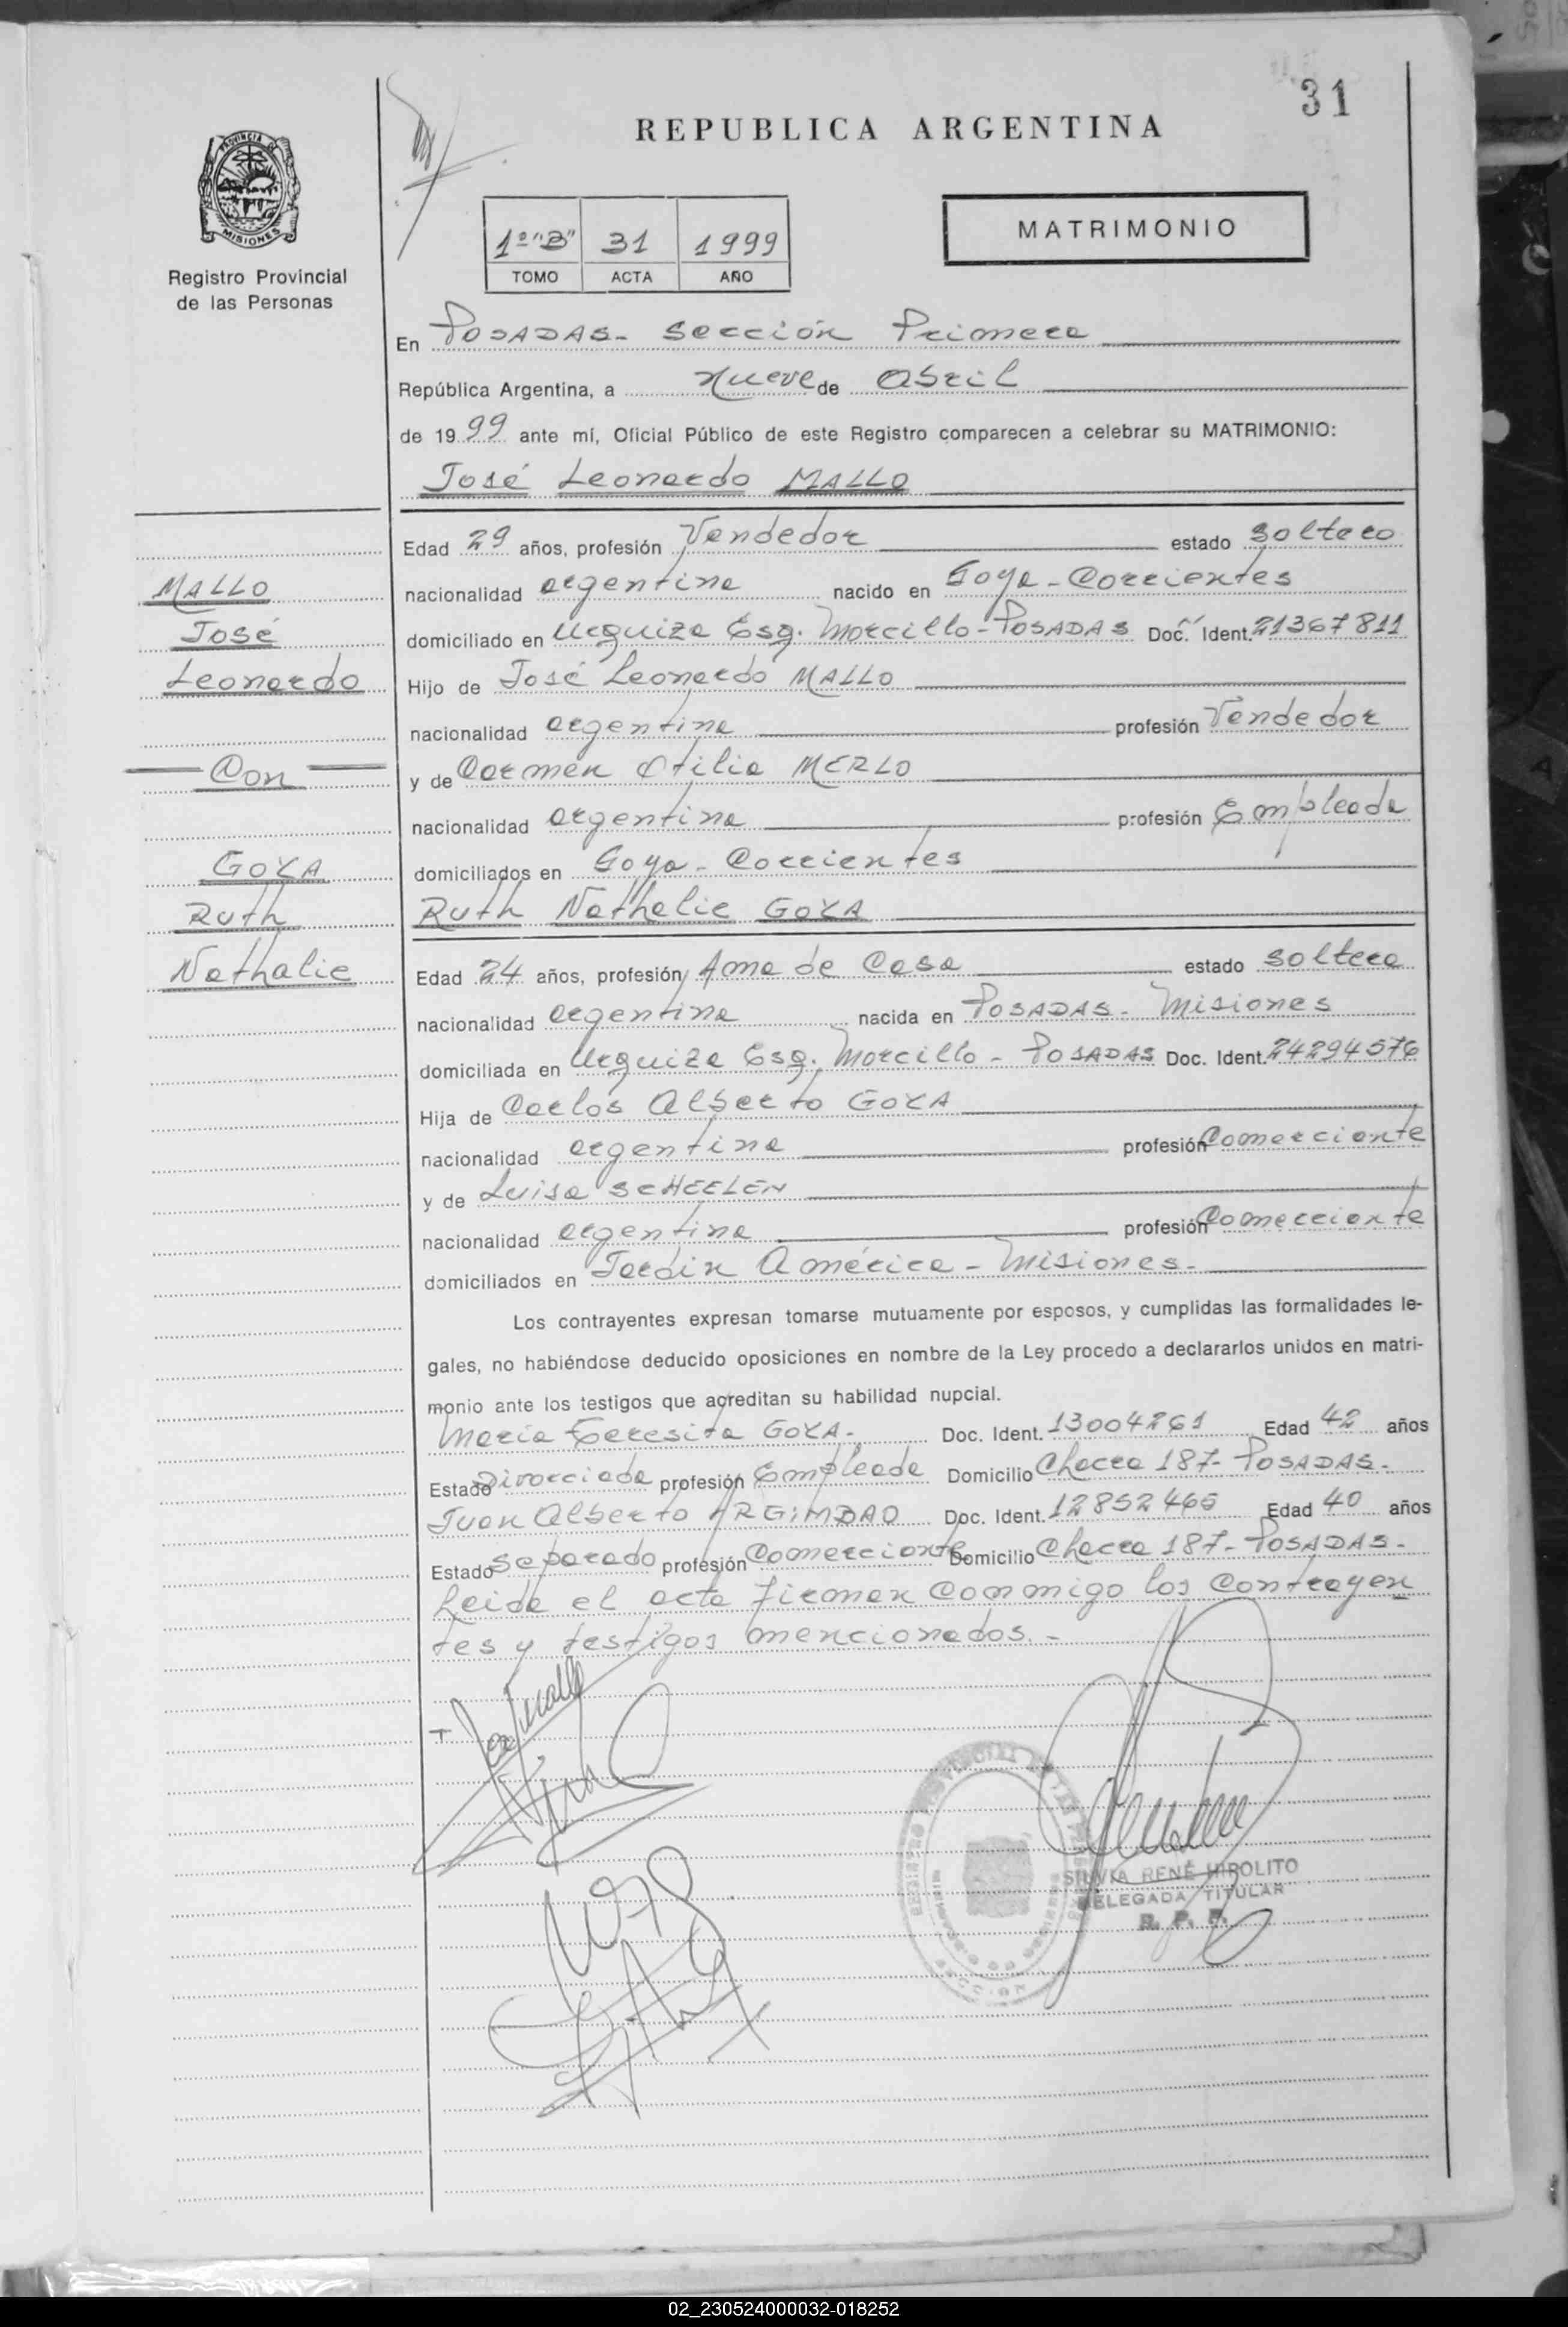 31
REPUBLICA ARGENTINA
PROVINCIA DE
MISIONES
Registro Provincial
de las Personas
1º "B" 31 1999
TOMO ACTA AÑO
MATRIMONIO
En POSADAS - Sección Primera
República Argentina, a nueve de Abril
de 1999 ante mí, Oficial Público de este Registro comparecen a celebrar su MATRIMONIO:
José Leonardo MALLO
Edad 29 años, profesión Vendedor estado soltero
MALLO
nacionalidad argentina nacido en Goya - Corrientes
José
domiciliado en Urquiza Esq. Morcillo - POSADAS Doc. Ident. 21367811
Leonardo
Hijo de José Leonardo MALLO
nacionalidad argentina profesión Vendedor
Con
y de Carmen Otilia MERLO
nacionalidad argentina profesión Empleada
GOYA
domiciliados en Goya - Corrientes
Ruth
Ruth Nathalie GOYA
Nathalie
Edad 24 años, profesión Ama de Casa estado soltera
nacionalidad argentina nacida en POSADAS - Misiones
domiciliada en Urquiza Esq. Morcillo - POSADAS Doc. Ident. 24294576
Hija de Carlos Alberto GOYA
nacionalidad argentina profesión Comerciante
y de Luisa SCHEELEN
nacionalidad argentina profesión Comerciante
domiciliados en Jardín América - Misiones -
Los contrayentes expresan tomarse mutuamente por esposos, y cumplidas las formalidades le-
gales, no habiéndose deducido oposiciones en nombre de la Ley procedo a declararlos unidos en matri-
monio ante los testigos que acreditan su habilidad nupcial.
María Teresita GOYA - Doc. Ident. 13004261 Edad 42 años
Estado Divorciada profesión Empleada Domicilio Chacra 187 - POSADAS -
Juan Alberto ARGIMBAO Doc. Ident. 12852465 Edad 40 años
Estado Separado profesión Comerciante Domicilio Chacra 187 - POSADAS -
Leida el acta firman conmigo los contrayen
tes y testigos mencionados. -
SILVIA RENÉ HIPOLITO
DELEGADA TITULAR
R. P. P.
02_230524000032-018252